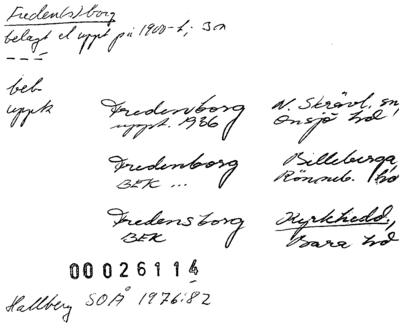 Freden(s)borg
belagt el uppt på 1900-t; Jön
beb-
uppk
Fredenborg N. Skrävl. sn,
uppt. 1936 Onsjö hd
Fredenborg Billeberga,
BEK ... Rönneb. hd
Fredensborg Kyrkhedd.,
BEK Bara hd
00026114
Hallberg SOÅ 1976:82